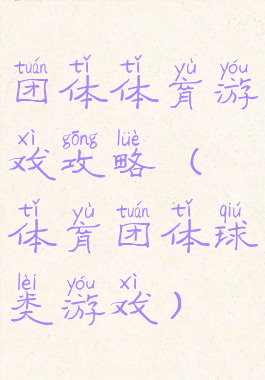 tuán tǐ tǐ yù yóu
团体体育游
xì gōng lüè
戏攻略（
tǐ yù tuán tǐ qiú
体育团体球
lèi yóu xì
类游戏）